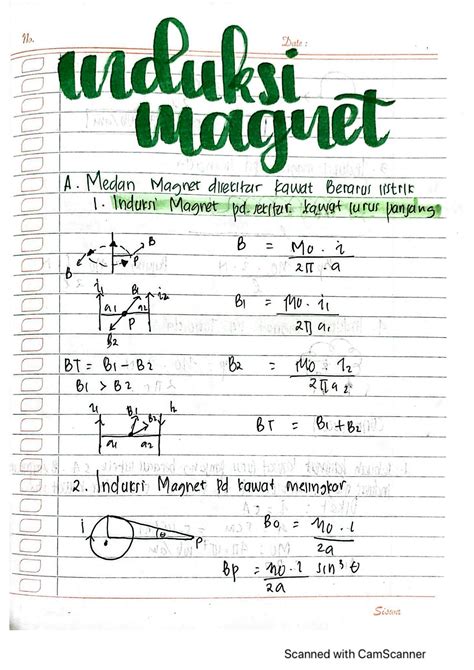 No.
Date :
induksi
magnet
A. Medan Magnet disekitar kawat Berarus listrik
1. Induksi Magnet pd. sekitar kawat lurus panjang
B = Mo . i / 2π . a
B
P
B
i1 B1 i2
a1 a2
P
B2
B1 = Mo . i1 / 2π a1
BT = B1 - B2
B1 > B2
B2 = Mo . I2 / 2π a2
B1 B2 I2
a1 a2
BT = B1 + B2
2. Induksi Magnet pd kawat melingkar
i
θ P
Bo = Mo . i / 2a
Bp = Mo . i sin³ θ / 2a
Scanned with CamScanner